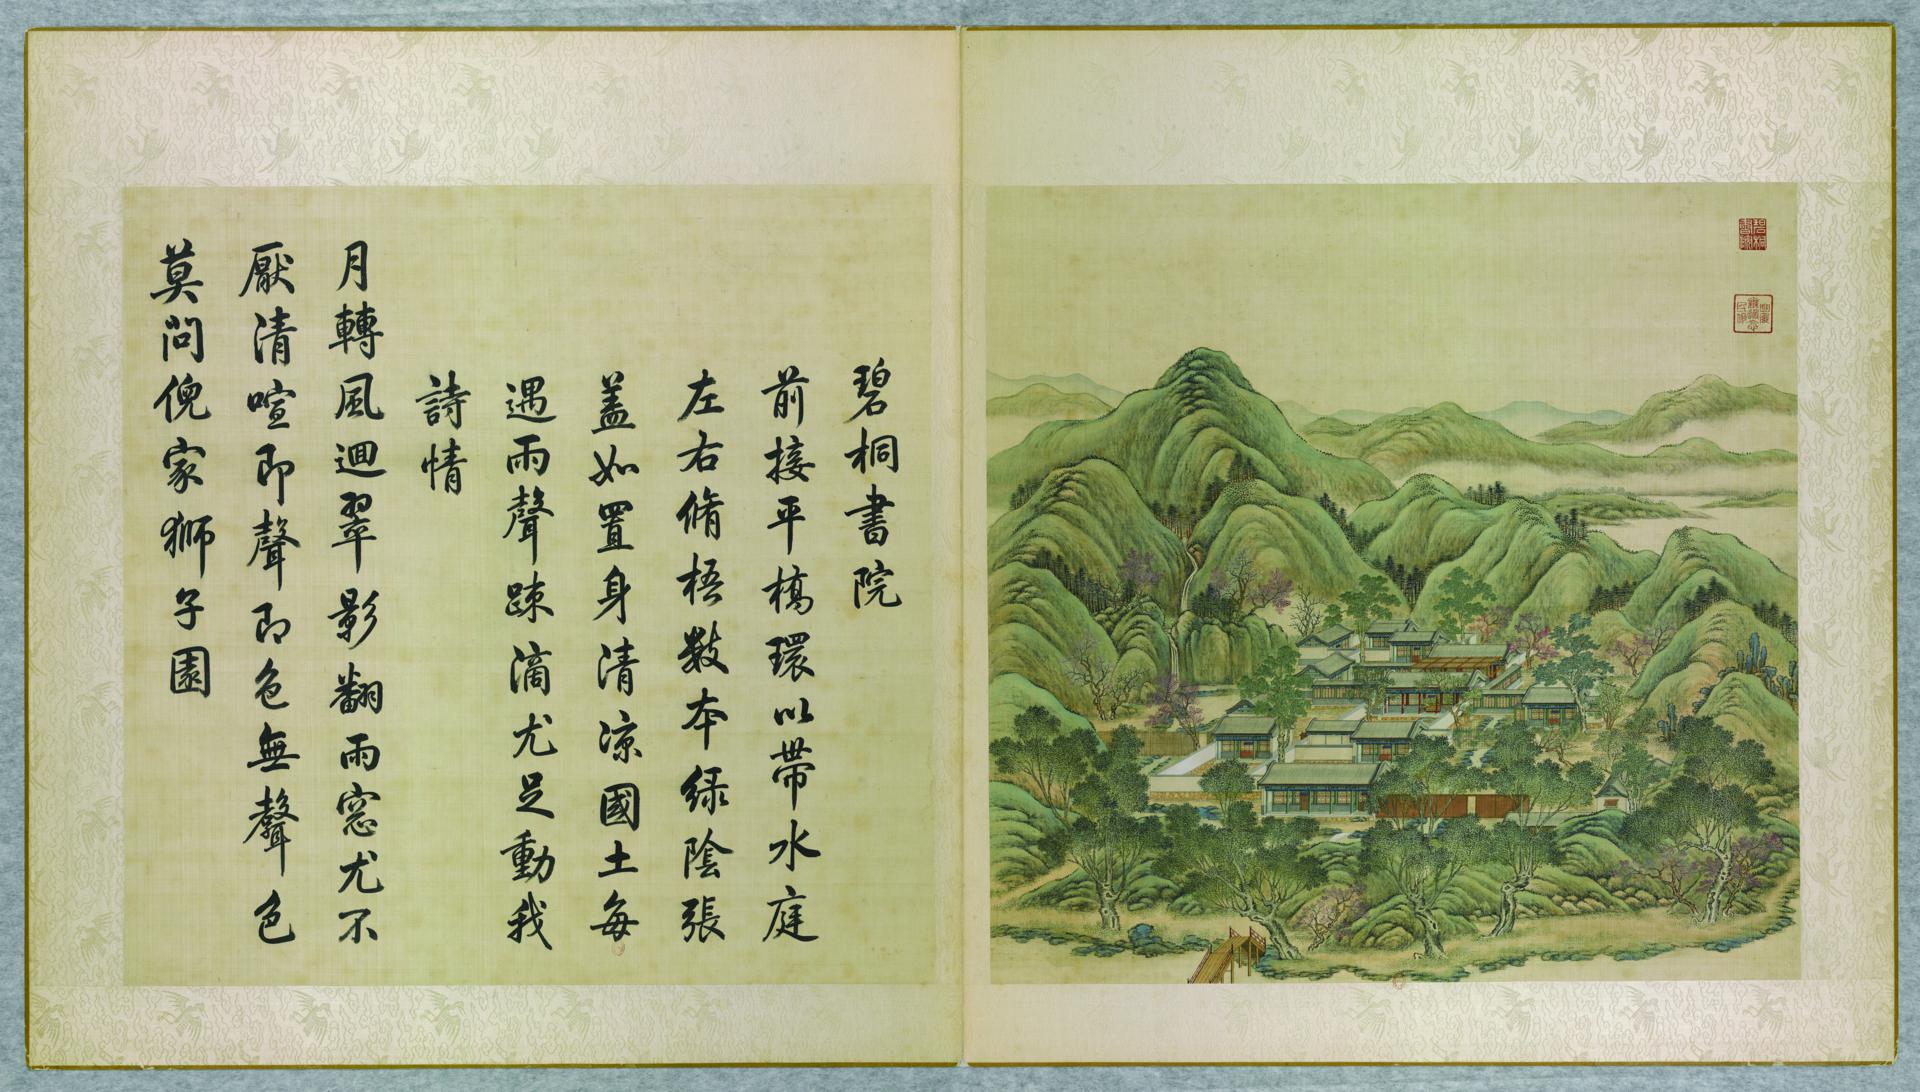 碧桐書院
前接平槗環以帶水庭
左右脩梧數本綠陰張
蓋如置身清涼國土每
遇雨聲踈滴尤足動我
詩情
月轉風迴翠影翻雨窓尤不
厭清喧即聲即色無聲色
莫問倪家獅子園